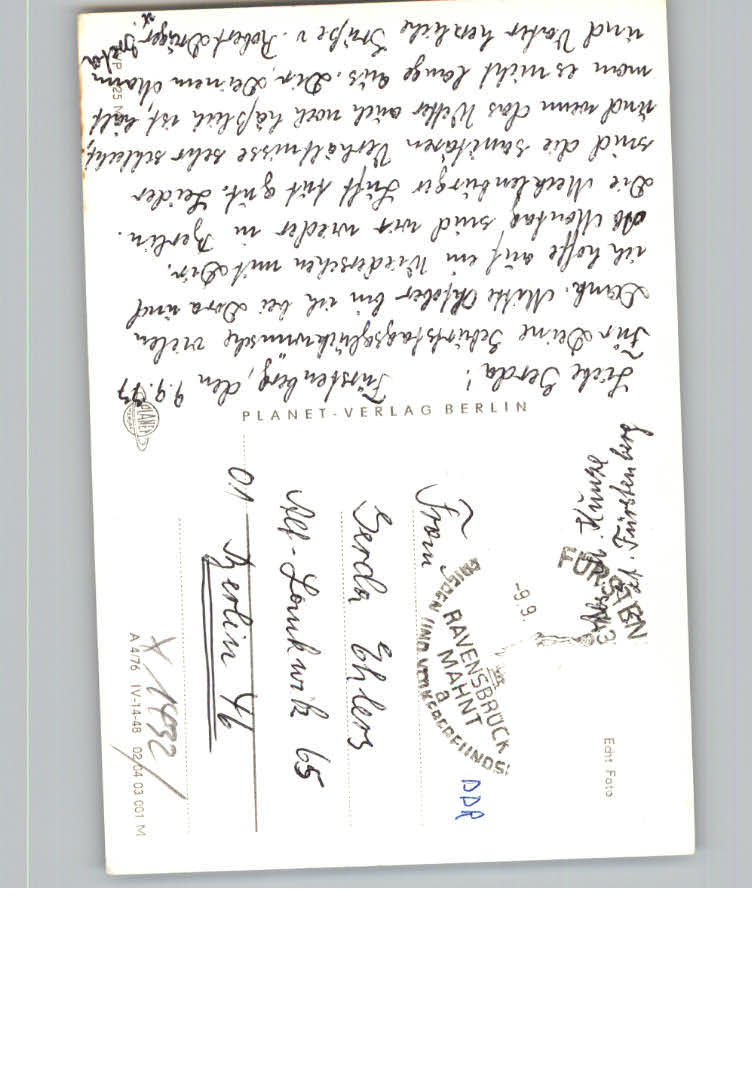 Liebe Gerda! Fürstenberg, den 9.9.77
Für Deine Geburtstagsglückwünsche vielen
Dank. Mitte Oktober bin ich bei Dora und
ich hoffe auf ein Wiedersehen mit Dir.
Ab Montag sind wir wieder in Berlin.
Die Mecklenburger Luft tut gut. Leider
sind die sanitären Verhältnisse sehr schlecht,
und wenn das Wetter auch noch häßlich ist, hält
man es nicht lange aus. Dir, Deinem Mann
und Vater herzliche Grüße v. Robert Dräger u.
PLANET-VERLAG BERLIN
PLANET
Frau
Gerda Ehlers
Alt-Lankwitz 65
01 Berlin 46
DDR
Abs.
Fürstenberg
FÜRSTEN
-9.9.
RAVENSBRÜCK
MAHNT
a
FRIEDEN UND VÖLKERFREUNDS
Echt Foto
A 4/76 IV-14-48 02 04 03 001 M
1432